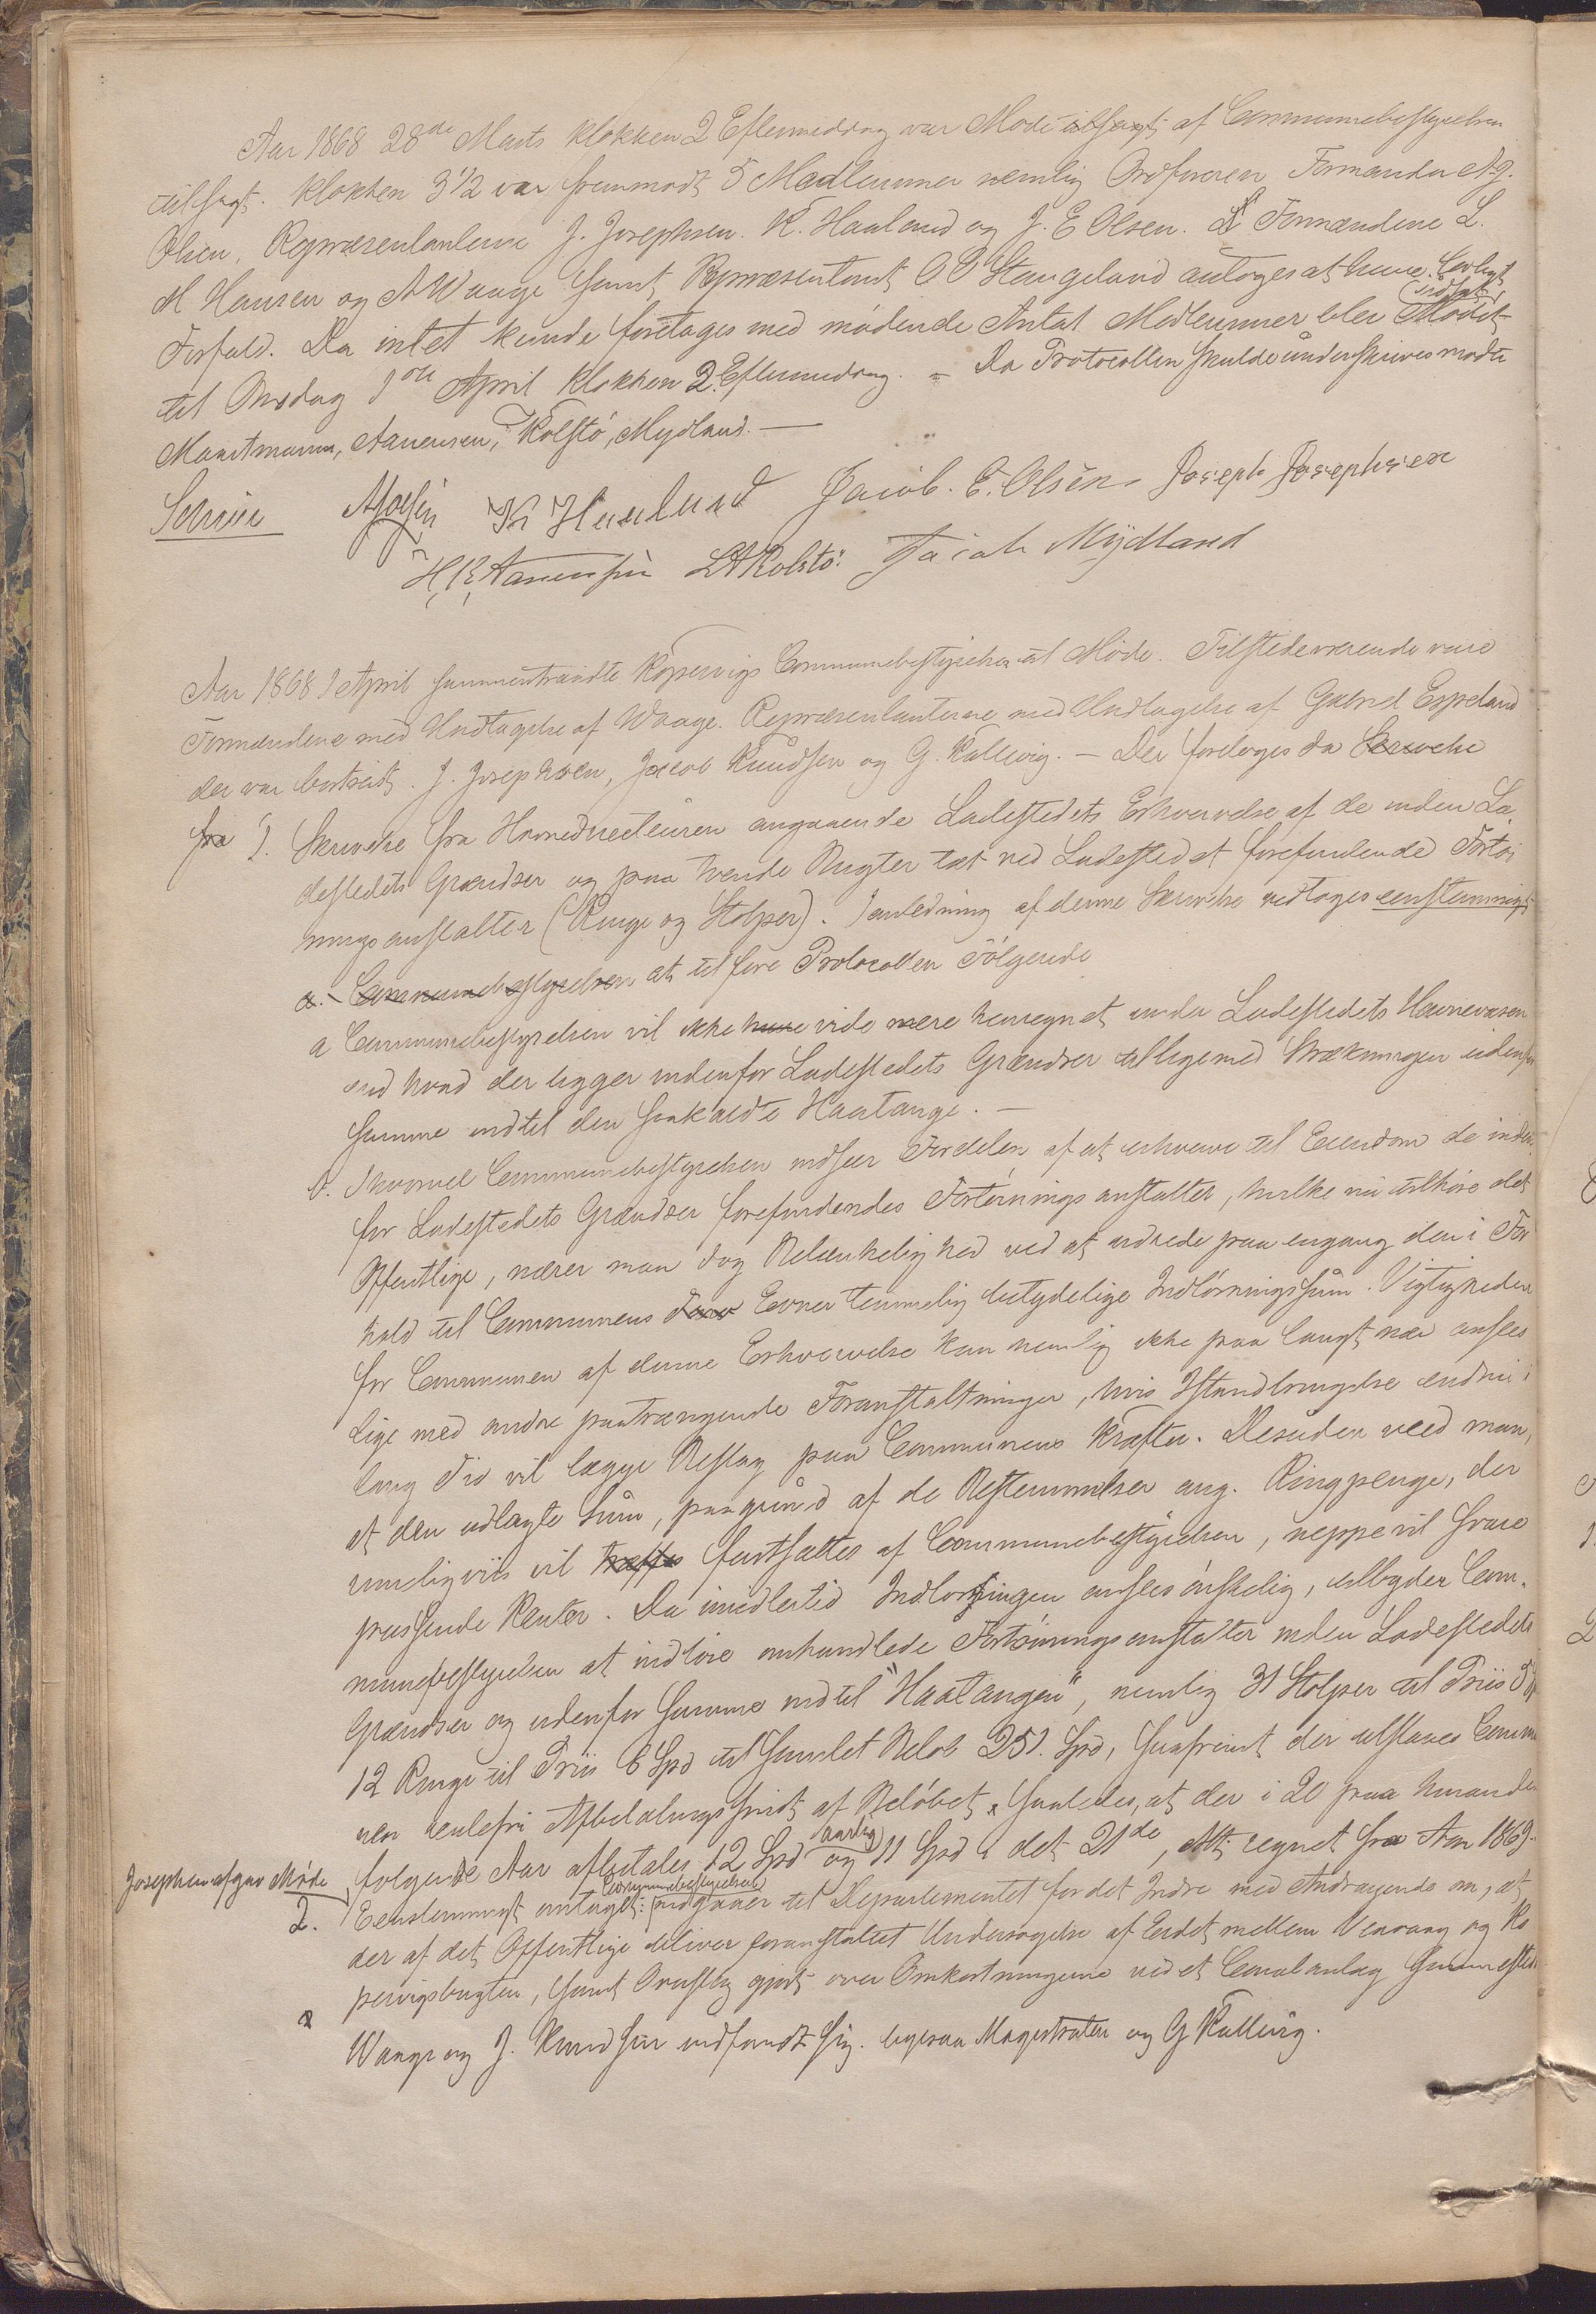 Aar 1868 28de Marts Klokken 2 Eftermiddag var Møde tilsagt af Communebestyrelsen
tilsagt. Klokken 3 1/2 var fremmødt 5 Medlemmer nemlig Ordføreren Formanden A. J.
Olsen, Repræsentanterne J. Josephsen. K. Haaland og J. E Olsen. Formændene L.
M Hansen og A Waage samt Repræsentant O O Stangeland antoges at have Lovligt
Forfald. Da intet kunde foretages med mødende Antal Medlemmer blev Mødet udsat
til Onsdag 1ste April Klokken 2 Eftermiddag. – Da Protocollen skulde underskrives mødte
Maartmann, Aanensen, Kolstö, Mydland. —
Schiøtz AJOlsen K Haaland Jacob. E. Olsen. Joseph Josephsen
H, K, Aanensen LAKolstö. Jacob Mÿdland
Aar 1868 1 April sammentraadte Kopervigs Communebestyrelse til Møde. Tilstedeværende vare
Formændene med Undtagelse af Waage. Repræsentanterne med Undtagelse af Gabriel Espeland
der var bortreist. J. Josephsen, Jacob Knudsen og G. Kallevig. — Der foreloges da Skrivelse
fra 1. Skrivelse fra Havnedirecteuren angaaende Ladestedets Erhvervelse af de inden La-
destedets Grændser og paa tvende Bugter tæt ved Ladestedet forefindende Fortøi
ningsanstalter (Ringe og Stolper). I anledning af denne Skrivelse vedtoges eenstemmigt
a. – Communebestyrelsen at tilføre Protocollen Følgende
a Communebestyrelsen vil ikke have vide mere henregnet under Ladestedets Havnevæsen
end hvad der ligger indenfor Ladestedets Grændser tilligemed Strækningen udenfor
samme indtil den saakaldte Haatange. —
b. Ihvorvel Communebestyrelsen indseer Fordelen af at erhverve til Eiendom de inden
for Ladestedets Grændser forefindendes Fortøiningsanstalter, hvilke nu tilhøre det
Offentlige, nærer man dog Betænkelighed ved at udrede paa engang den i For
hold til Communens Evner temmelig betydelige Indløsningssum. Vigtigheden
for Communen af denne Erhvervelse kan nemlig ikke paa langt nær ansees
lige med andre paatrængende Foranstaltninger, hvis Istandbringelse endnu i
lang Tid vil lægge Beslag paa Communens Kræfter. Desuden veed man,
at den udlagte Sum, paagrund af de Bestemmelser ang. Ringpenge, der
rimeligviis vil træffes fastsættes af Communebestyrelsen, neppe vil svare
passende Renter. Da imidlertid Indløsningen ansees ønskelig, tilbyder Com-
munebestyrelsen at indløse omhandlede Fortøiningsanstalter inden Ladestedets
Grændser og udenfor samme indtil "Haatangen", nemlig 31 Stolper til Priis
12 Ringe til Priis 6 Spd til samlet Beløb 251. Spd, saafremt der tilstaaes Commu
nen rentefri Afbetalingsfrist af Beløbet, saaledes, at der i 20 paa hinanden
Josephsen afgav Møde følgende Aar afbetales 12 Spd aarlig og 11 Spd i det 21de, Alt regnet fra Aar 1869.
2. Eenstemmigt antaget: Communebestyrelsen indgaaer til Departementet for det Indre med Andragende om, at
der af det Offentlige bliver foranstaltet Undersøgelse af Eidet mellem Veavaag og Ko
pervigbugten, samt Overslag gjort over Omkostningerne ved et Canalanlæg sammesteds
Waage og J. Knudsen indfandt sig. ligesaa Magistraten og G Kallevig.